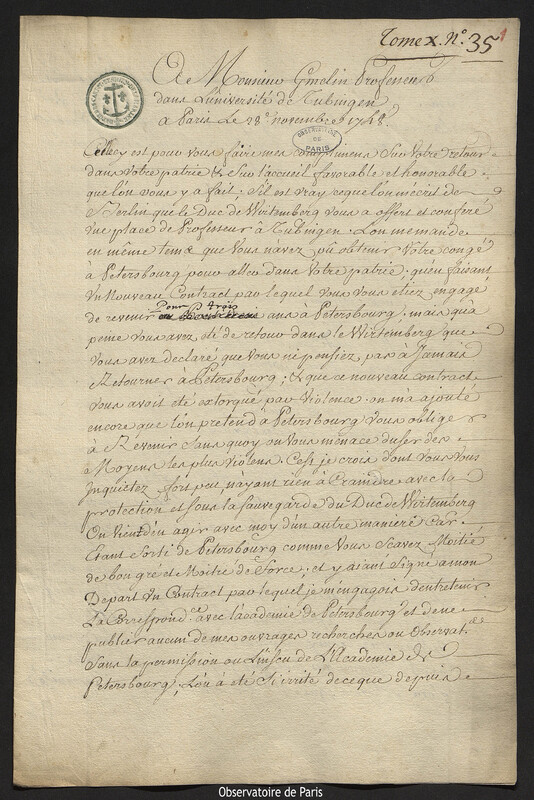 Tome X. N.° 35 1
A Monsieur Gmelin Professeur
dans L'université de Tubingen
a Paris Le 28.e novembre 1748.
OBSERVATOIRE DE PARIS
Cellecy est pour vous faire mes complimens sur votre retour
dans votre patrie & sur l'accueil favorable et honorable
que l'on vous y a fait. S'il est vray ce que l'on m'ecrit de
Berlin que le Duc de Wirtemberg vous a offert et conferé
une place de Professeur à Tubingen. L'on me mande
en même tems que vous n'avez pû obtenir votre congé
à Petersbourg pour aller dans votre patrie, qu'en faisant
un nouveau Contract par lequel vous vous étiez engagé
de revenir pour trois ans à Petersbourg. mais qu'à
peine vous avez été de retour dans le Wirtemberg que
vous avez declaré que vous ne pensiez pas à Jamais
Retourner à Petersbourg; & que ce nouveau contract
vous avoit eté extorqué par violence. on m'a ajouté
encore que l'on pretend à Petersbourg vous obliger
à Revenir sans quoy on vous menace d'user des
Moyens les plus violens. C'est je crois dont vous vous
Inquietez fort peu, n'ayant rien à Craindre avec la
protection et sous la sauvegarde du Duc de Wirtemberg
On vient d'en agir avec moy d'un autre maniere Car
Etant sorti de Petersbourg comme vous scavez Moitié
de bon gré et Moitié de force; et y aiant signé a mon
Depart un Contract par lequel je m'engageois d'entretenir
La Correspond.ce avec l'academie de Petersbourg et de ne
publier aucun de mes ouvrages recherches ou Observat.s
Sans la permission ou L'insçu de L'Academie de
Petersbourg, L'on à eté si irrité de ce que depuis
Observatoire de Paris